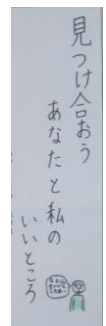 見つけ合おう
あなたと私の
いいところ